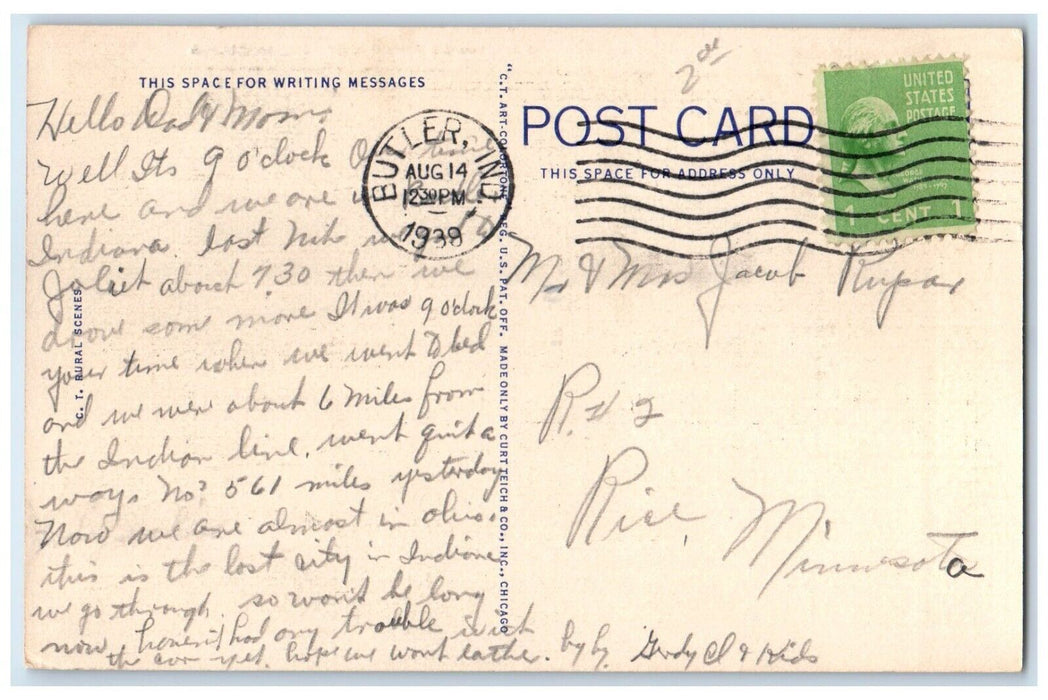 THIS SPACE FOR WRITING MESSAGES
Hello Dad & Mom.
Well Its 9 o'clock time
here and we are
Indiana. last nite
Joliet about 730 then we
drove some more It was 9 o'clock
your time when we went to bed
and we were about 6 miles from
the Indian line. went quit a
ways no? 561 miles yesterday
Now we are almost in ohio.
this is the last city in Indiana
we go through. so won't be long
now. haven't had any trouble with
the car yet. hope we wont eather. by by. Gerdy Cl & Kids
C. T. RURAL SCENES
"C. T. ART-COLORTONE" REG. U. S. PAT. OFF. MADE ONLY BY CURT TEICH & CO., INC., CHICAGO
BUTLER, IND.
AUG 14
12 30 PM
1939
2
POST CARD
THIS SPACE FOR ADDRESS ONLY
UNITED
STATES
POSTAGE
1 CENT 1
Mr & Mrs Jacob Rupar
R. # 2
Rice, Minnesota